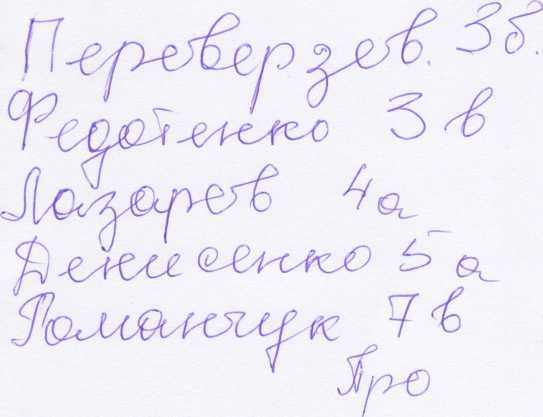 Переверзев. 3б.
Федотенко 3в
Лазарев 4а
Денисенко 5а
Романчук 7в
Про